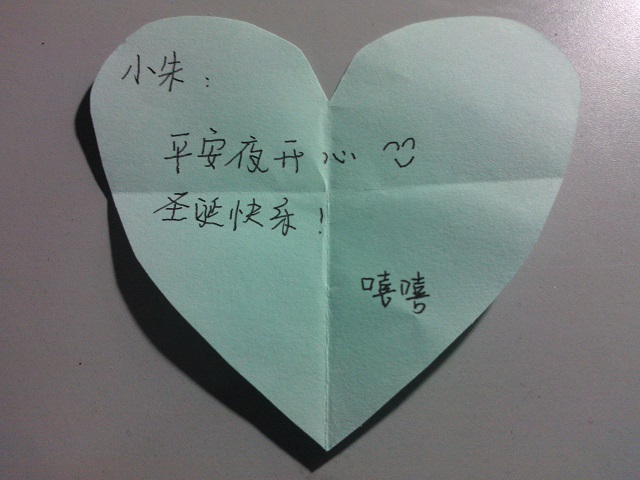 小朱：
平安夜开心
圣诞快乐！
嘻嘻